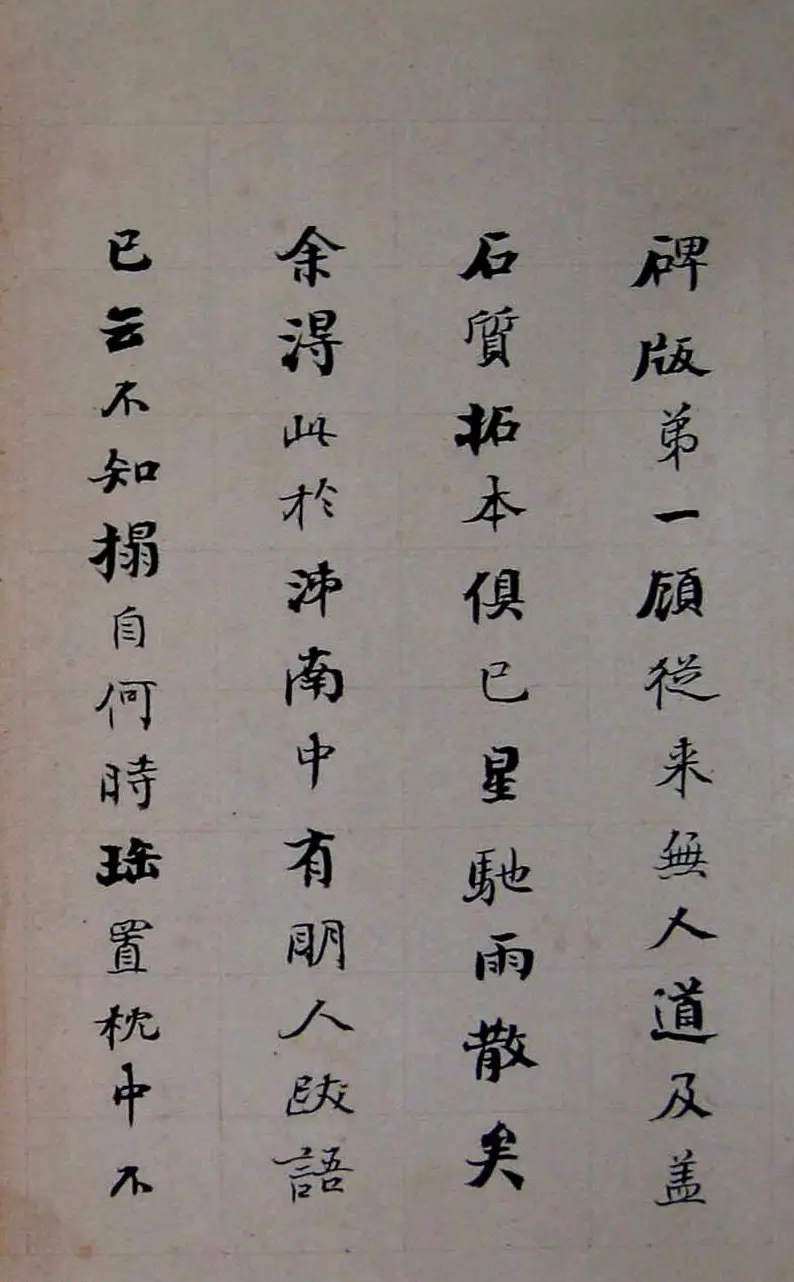 碑版弟一顧從来無人道及盖
石質拓本俱已星馳雨散矣
余淂此於沛南中有朙人跋語
已云不知搨自何時珤置枕中不